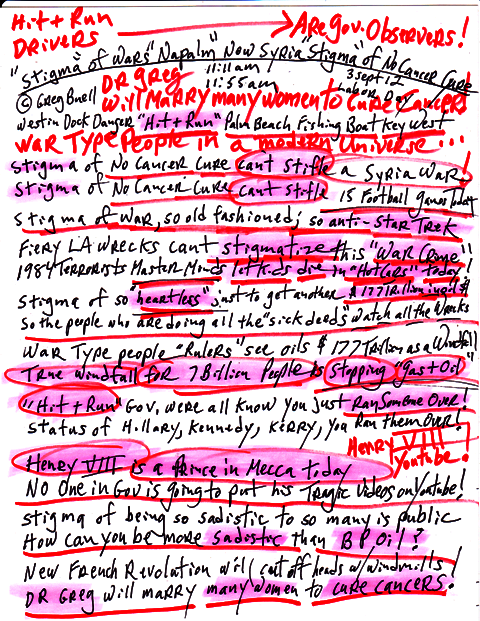 Hit + Run → Are Gov. Observers!
Drivers
"Stigma" of Wars "Napalm" Now Syria "Stigma" of No Cancer Cure
DR Greg 11:11am 3 Sept 12
© Greg Buell 11:55am Labor Day
Will Marry many women to Cure Cancers!
Westin Dock Danger "Hit + Run" Palm Beach, Fishing Boat Key West
War Type People in a modern Universe...
Stigma of No Cancer Cure can't stifle a Syria War!
Stigma of No Cancer Cure can't stifle 15 Football games Today
Stigma of War, so old fashioned; so anti-Star Trek
Fiery LA Wrecks can't stigmatize this "War Crime"
1984 Terrorists Master Minds let kids die in "Hot Cars" today!
Stigma of so "heartless" just to get another $177 Trillion in oil $
So the people who are doing all the "sick deeds" watch all the Wrecks
War Type people "Rulers" see oils $177 Trillion as a Windfall
True windfall for 7 Billion People is Stopping "gas + oil"
"Hit + Run" Gov, were all know you just Ran Someone Over!
Status of Hillary, Kennedy, Kerry, you Ran them Over!
Henry VIII Youtube!
Henry VIII is a Prince in Mecca today
No One in Gov is going to put his Tragic Videos on Youtube!
Stigma of being so sadistic to so many is public
How can you be more sadistic than BP Oil!?
New French Revolution we'll cut off heads w/ windmills!
DR Greg will marry many women to cure cancers!